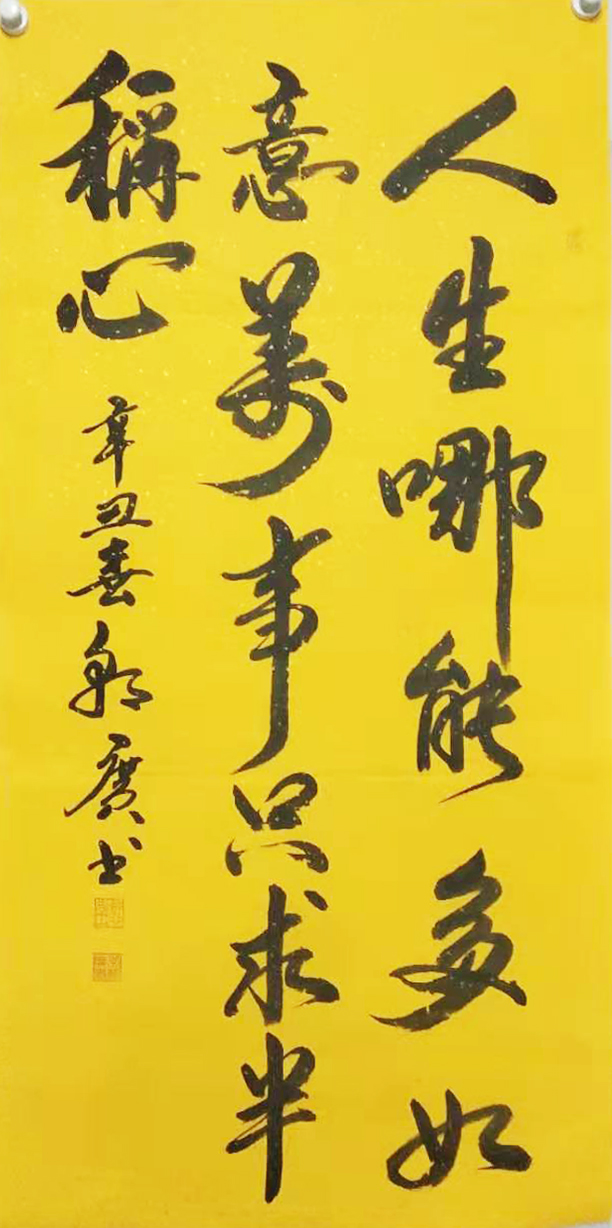 人生哪能多如
意萬事只求半
稱心
辛丑春 廣书